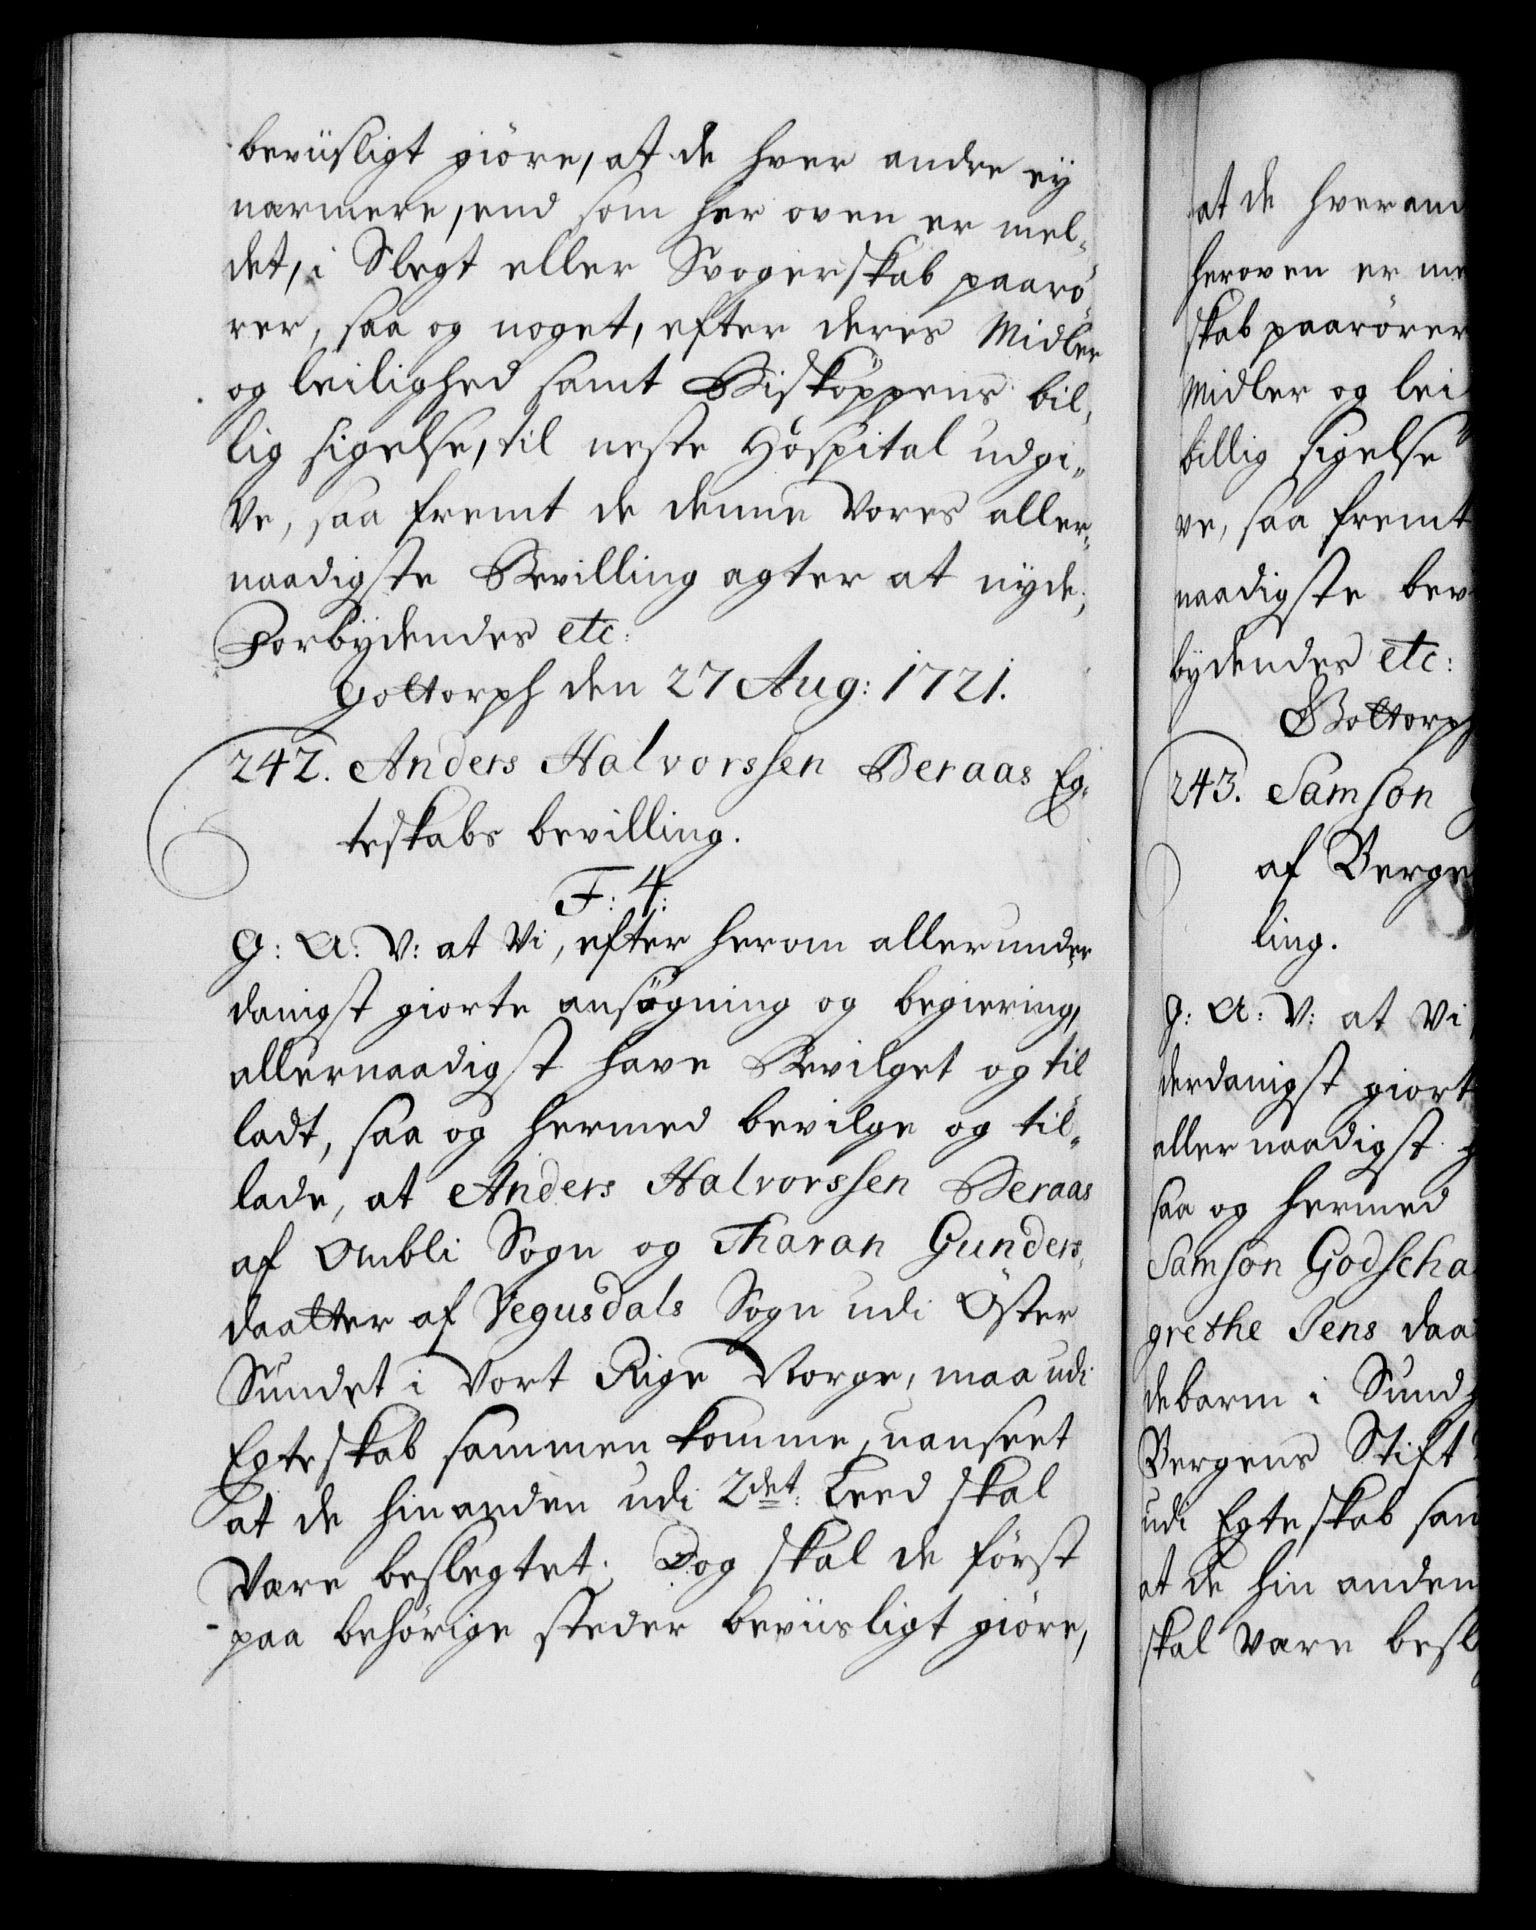 beviisligt giöre, at de hver andre ey
nærmere, end som her oven er mel„
det, i Slegt eller Svogerskab paarö
rer, saa og noget, efter deres Midler
og leilighed samt Biskoppens bil„
lig sigelse, til neste Hospital udgi„
ve, saa fremt de denne vores aller„
naadigste Bevilling agter at nyde;
Forbydendes etc:
Gottorph den 27 Aug: 1721.
242. Anders Halvorssen Beraas Eg„
teskabs bevilling.
F: 4:
G: A: V: at Vi, efter herom allerunder
danigst giorte ansögning og begiering,
allernaadigst have Bevilget og til
ladt, saa og hermed bevilge og til„
lade, at Anders Halvorssen Beraas
af Ombli Sogn og Tharan Gunders„
daatter af Vegusdals Sogn udi Öster
Sundet i Vort Rige Norge, maa udi
Egteskab sammen komme, uanseet
at de hinanden udi 2det: Leed skal
være beslegtet; Dog skal de först
paa behörige steder beviisligt giöre,
at de hverand
heroven er me
skab paarörer
Midler og lei
billig sigelse
ve, saa fremt
naadigste bev
bydendes etc:
Gottorph
243. Samson
af Berge
ling.
G: A: V: at Vi
derdanigst giort
allernaadigst
saa og hermed
Samson Godscha
grethe Jens daa
debarm i Sund
Bergens Stift
udi Egteskab sam
at de hin anden
skal være besl